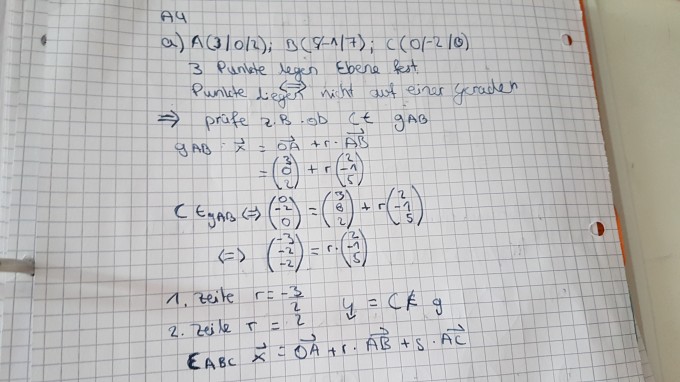 A4
a) A(3/0/2); B(5/-1/7); C(0/-2/0)
3 Punkte legen Ebene fest
⇔
Punkte liegen nicht auf einer Geraden
⇒ prüfe z.B. ob C ∈ gAB
gAB: x⃗ = OA⃗ + r · AB⃗
= (3 0 2) + r (2 -1 5)
C ∈ gAB ⇔ (0 -2 0) = (3 0 2) + r (2 -1 5)
⇔ (-3 -2 -2) = r · (2 -1 5)
1. Zeile r = -3/2
2. Zeile r = 2 = C ∉ g
EABC x⃗ = OA⃗ + r · AB⃗ + s · AC⃗